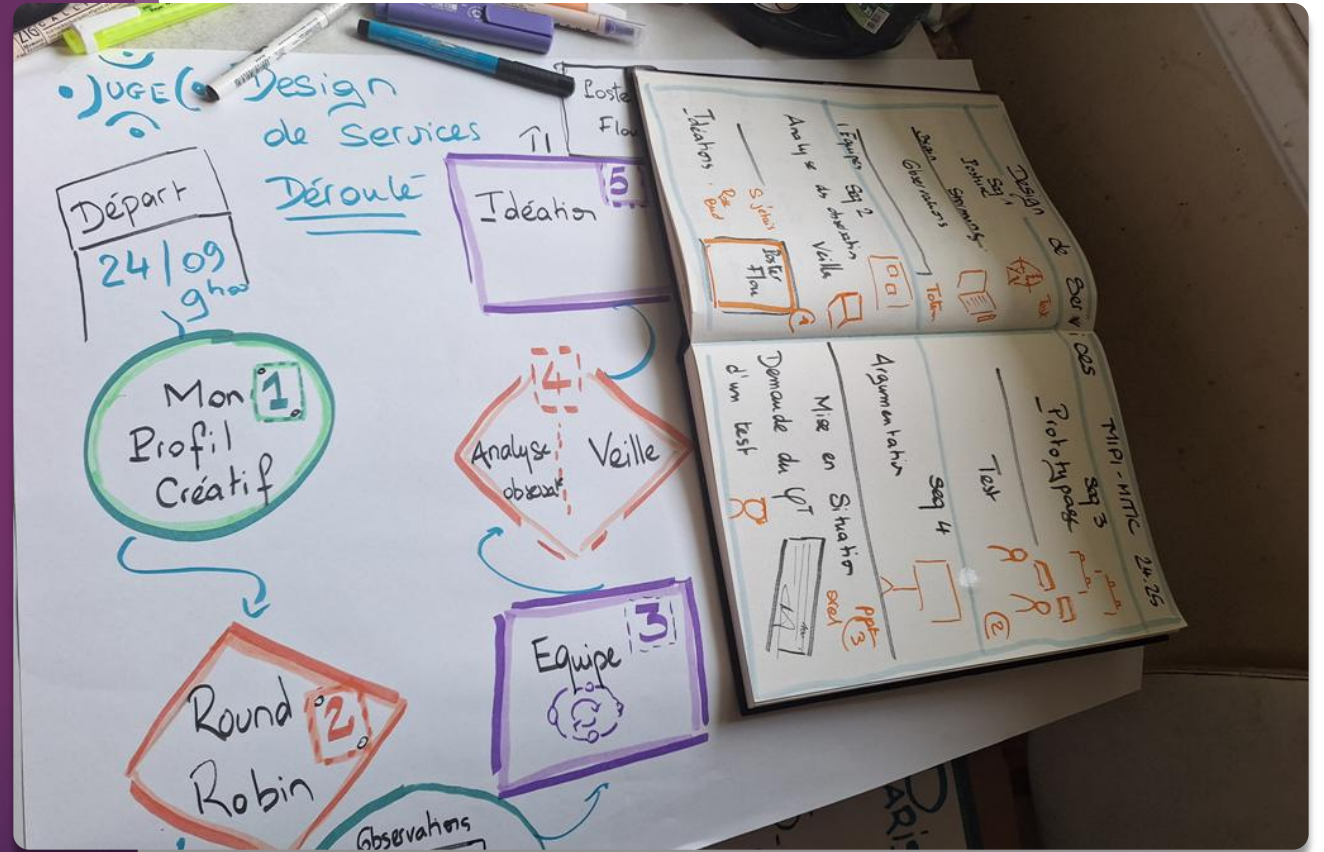 UGE
Design
de Services
Déroulé
Départ
24/09
9h00
Mon 1
Profil
Créatif
Round 2
Robin
Observations
Equipe 3
4
Analyse
observat°
Veille
Idéation 5
Poste
Flou
Design de Services MIPI-MMC 24.25
Seq 1
Posture
Test
Observations
Totem
Equipes Seq 2
Analyse des observation
Veille
Idéations
Poster
Flou
1
Seq 3
Prototypage
Test
2
Seq 4
Argumentation
Mise en Situation
ppt 3
Demande du
d'un test